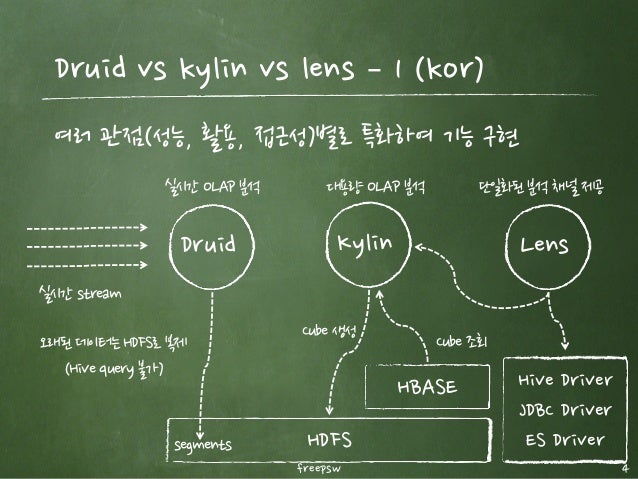 Druid vs kylin vs lens - 1 (kor)
여러 관점(성능, 활용, 접근성)별로 특화하여 기능 구현
실시간 OLAP 분석
다용량 OLAP 분석
단일화된 분석 채널 제공
Druid
kylin
Lens
실시간 stream
오래된 데이터는 HDFS로 복제
(Hive query 불가)
cube 생성
cube 조회
HBASE
Hive Driver
JDBC Driver
ES Driver
segments
HDFS
freepsw
4